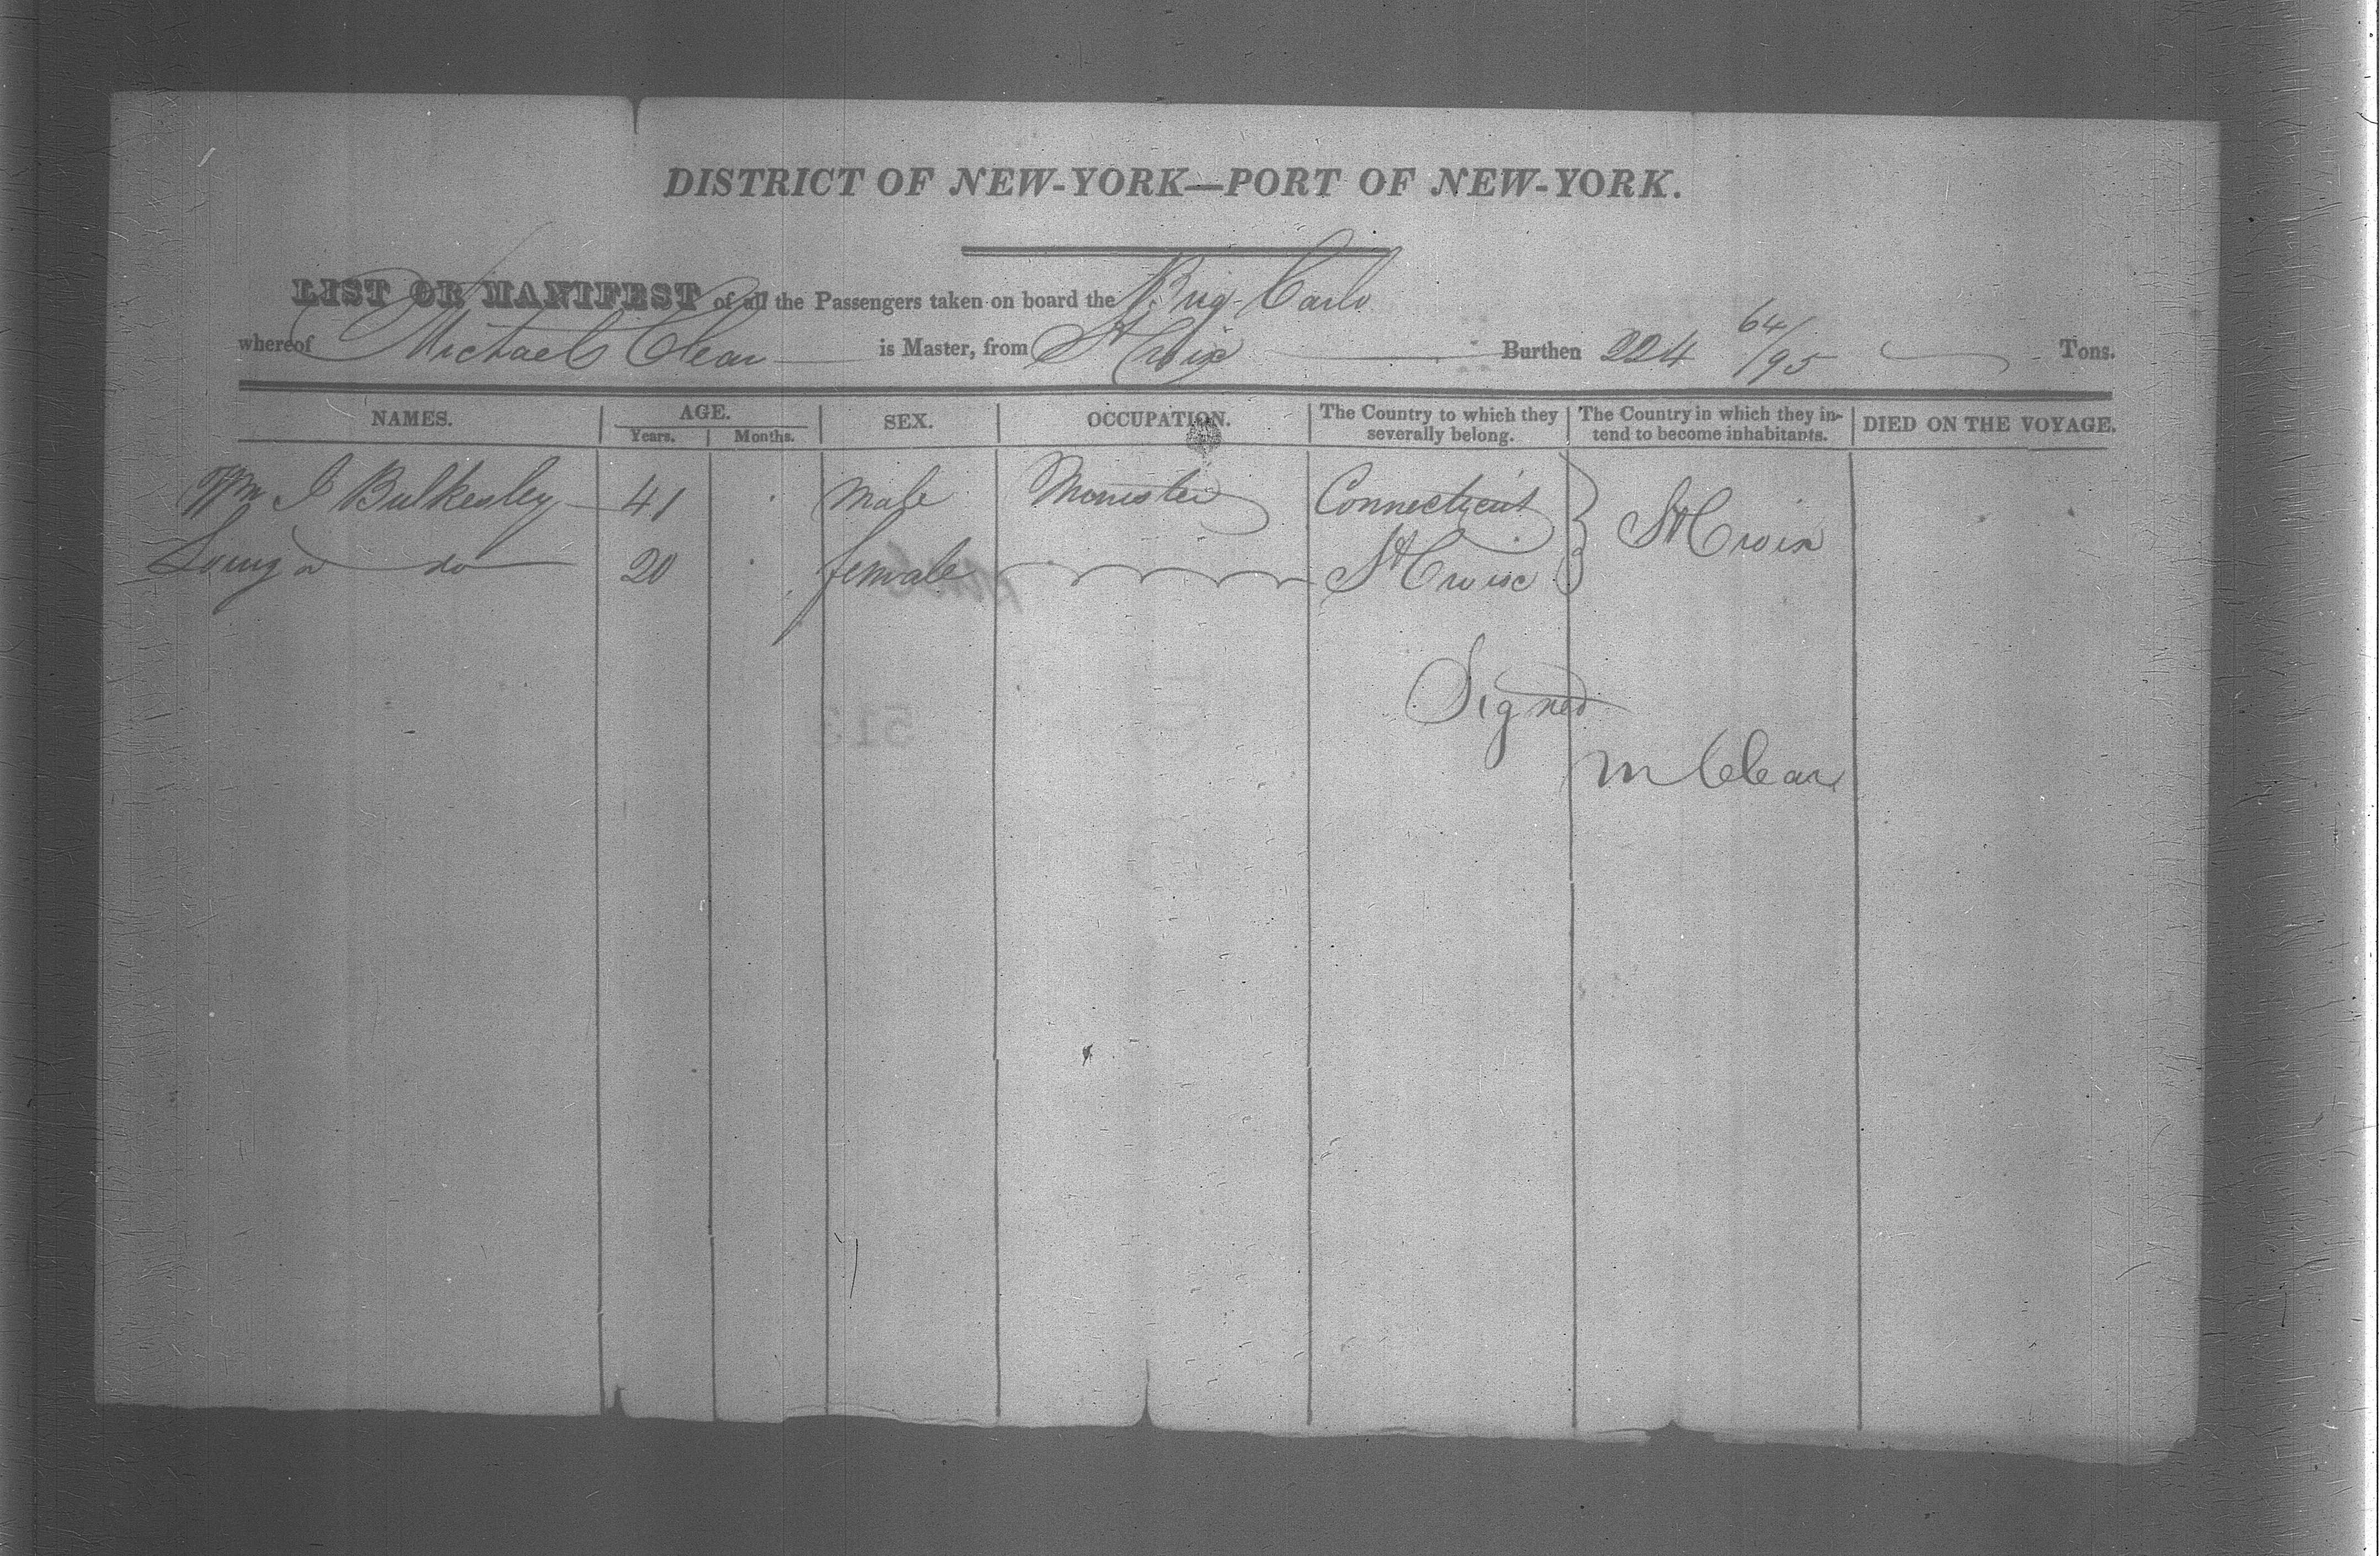 DISTRICT OF NEW-YORK—PORT OF NEW-YORK.
LIST OR MANIFEST of all the Passengers taken on board the Brig Carlo
whereof Michael Clear is Master, from St Croix Burthen 224 64/95 Tons.
NAMES. AGE. SEX. OCCUPATION. The Country to which they severally belong. The Country in which they intend to become inhabitants. DIED ON THE VOYAGE.
Years. Months.
Wm J Bulkesley 41 male Connecticut St Croix
do 20 female St Croix
Signed
M Clear
513